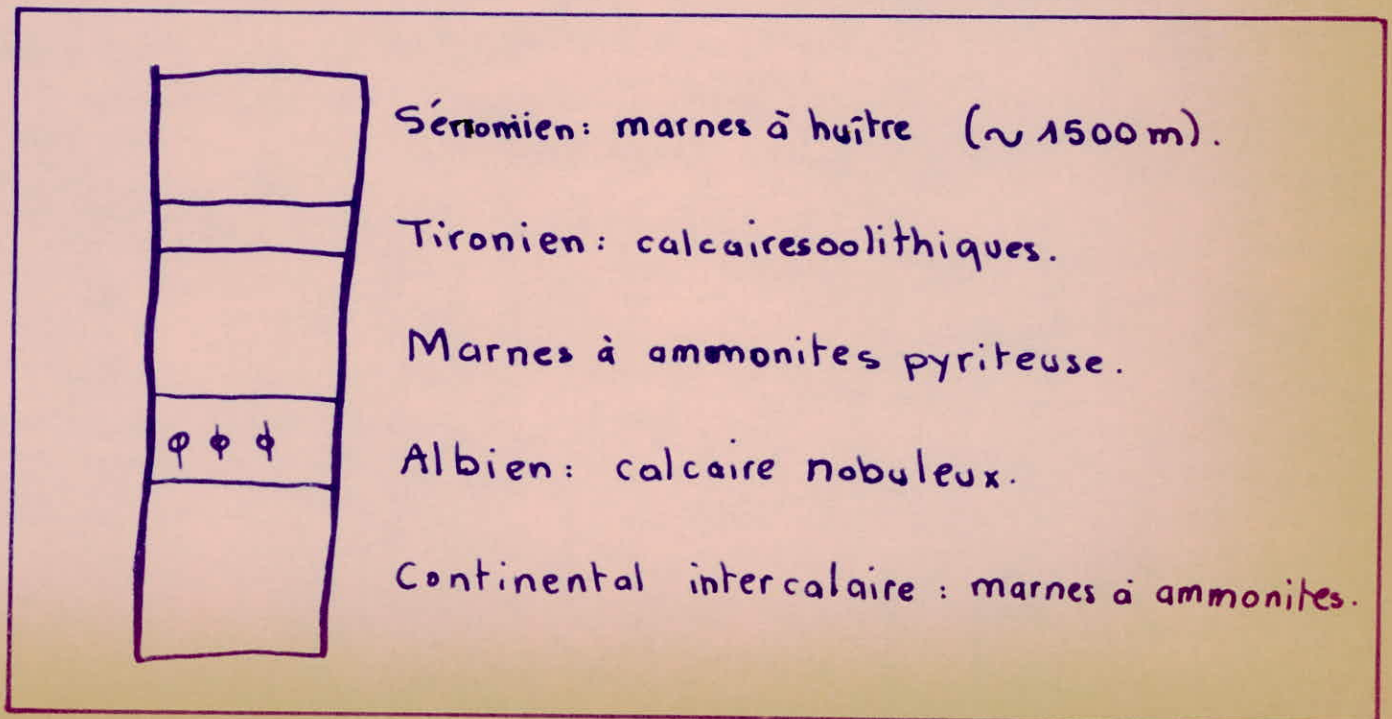 Sénomien: marnes à huître (~ 1500 m).
Tironien: calcairesoolithiques.
Marnes à ammonites pyriteuse.
Albien: calcaire nobuleux.
Continental intercalaire: marnes à ammonites.